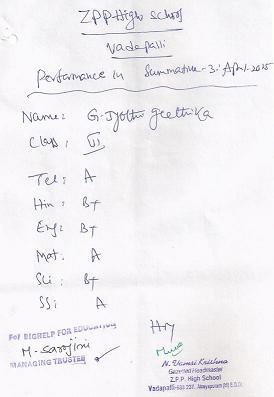 ZPP High School
Vadapalli
Performance in Summative-3: April-2015
Name: G. Jyothi Geethika
Class: VI
Tel: A
Hin: B+
Eng: B+
Mat: A
Sci: B+
SS: A
For BIGHELP FOR EDUCATION
M. Sarojini
MANAGING TRUSTEE
N. Vamsi Krishna
Gazetted Headmaster
Z.P.P. High School
Vadapalli-533 237,